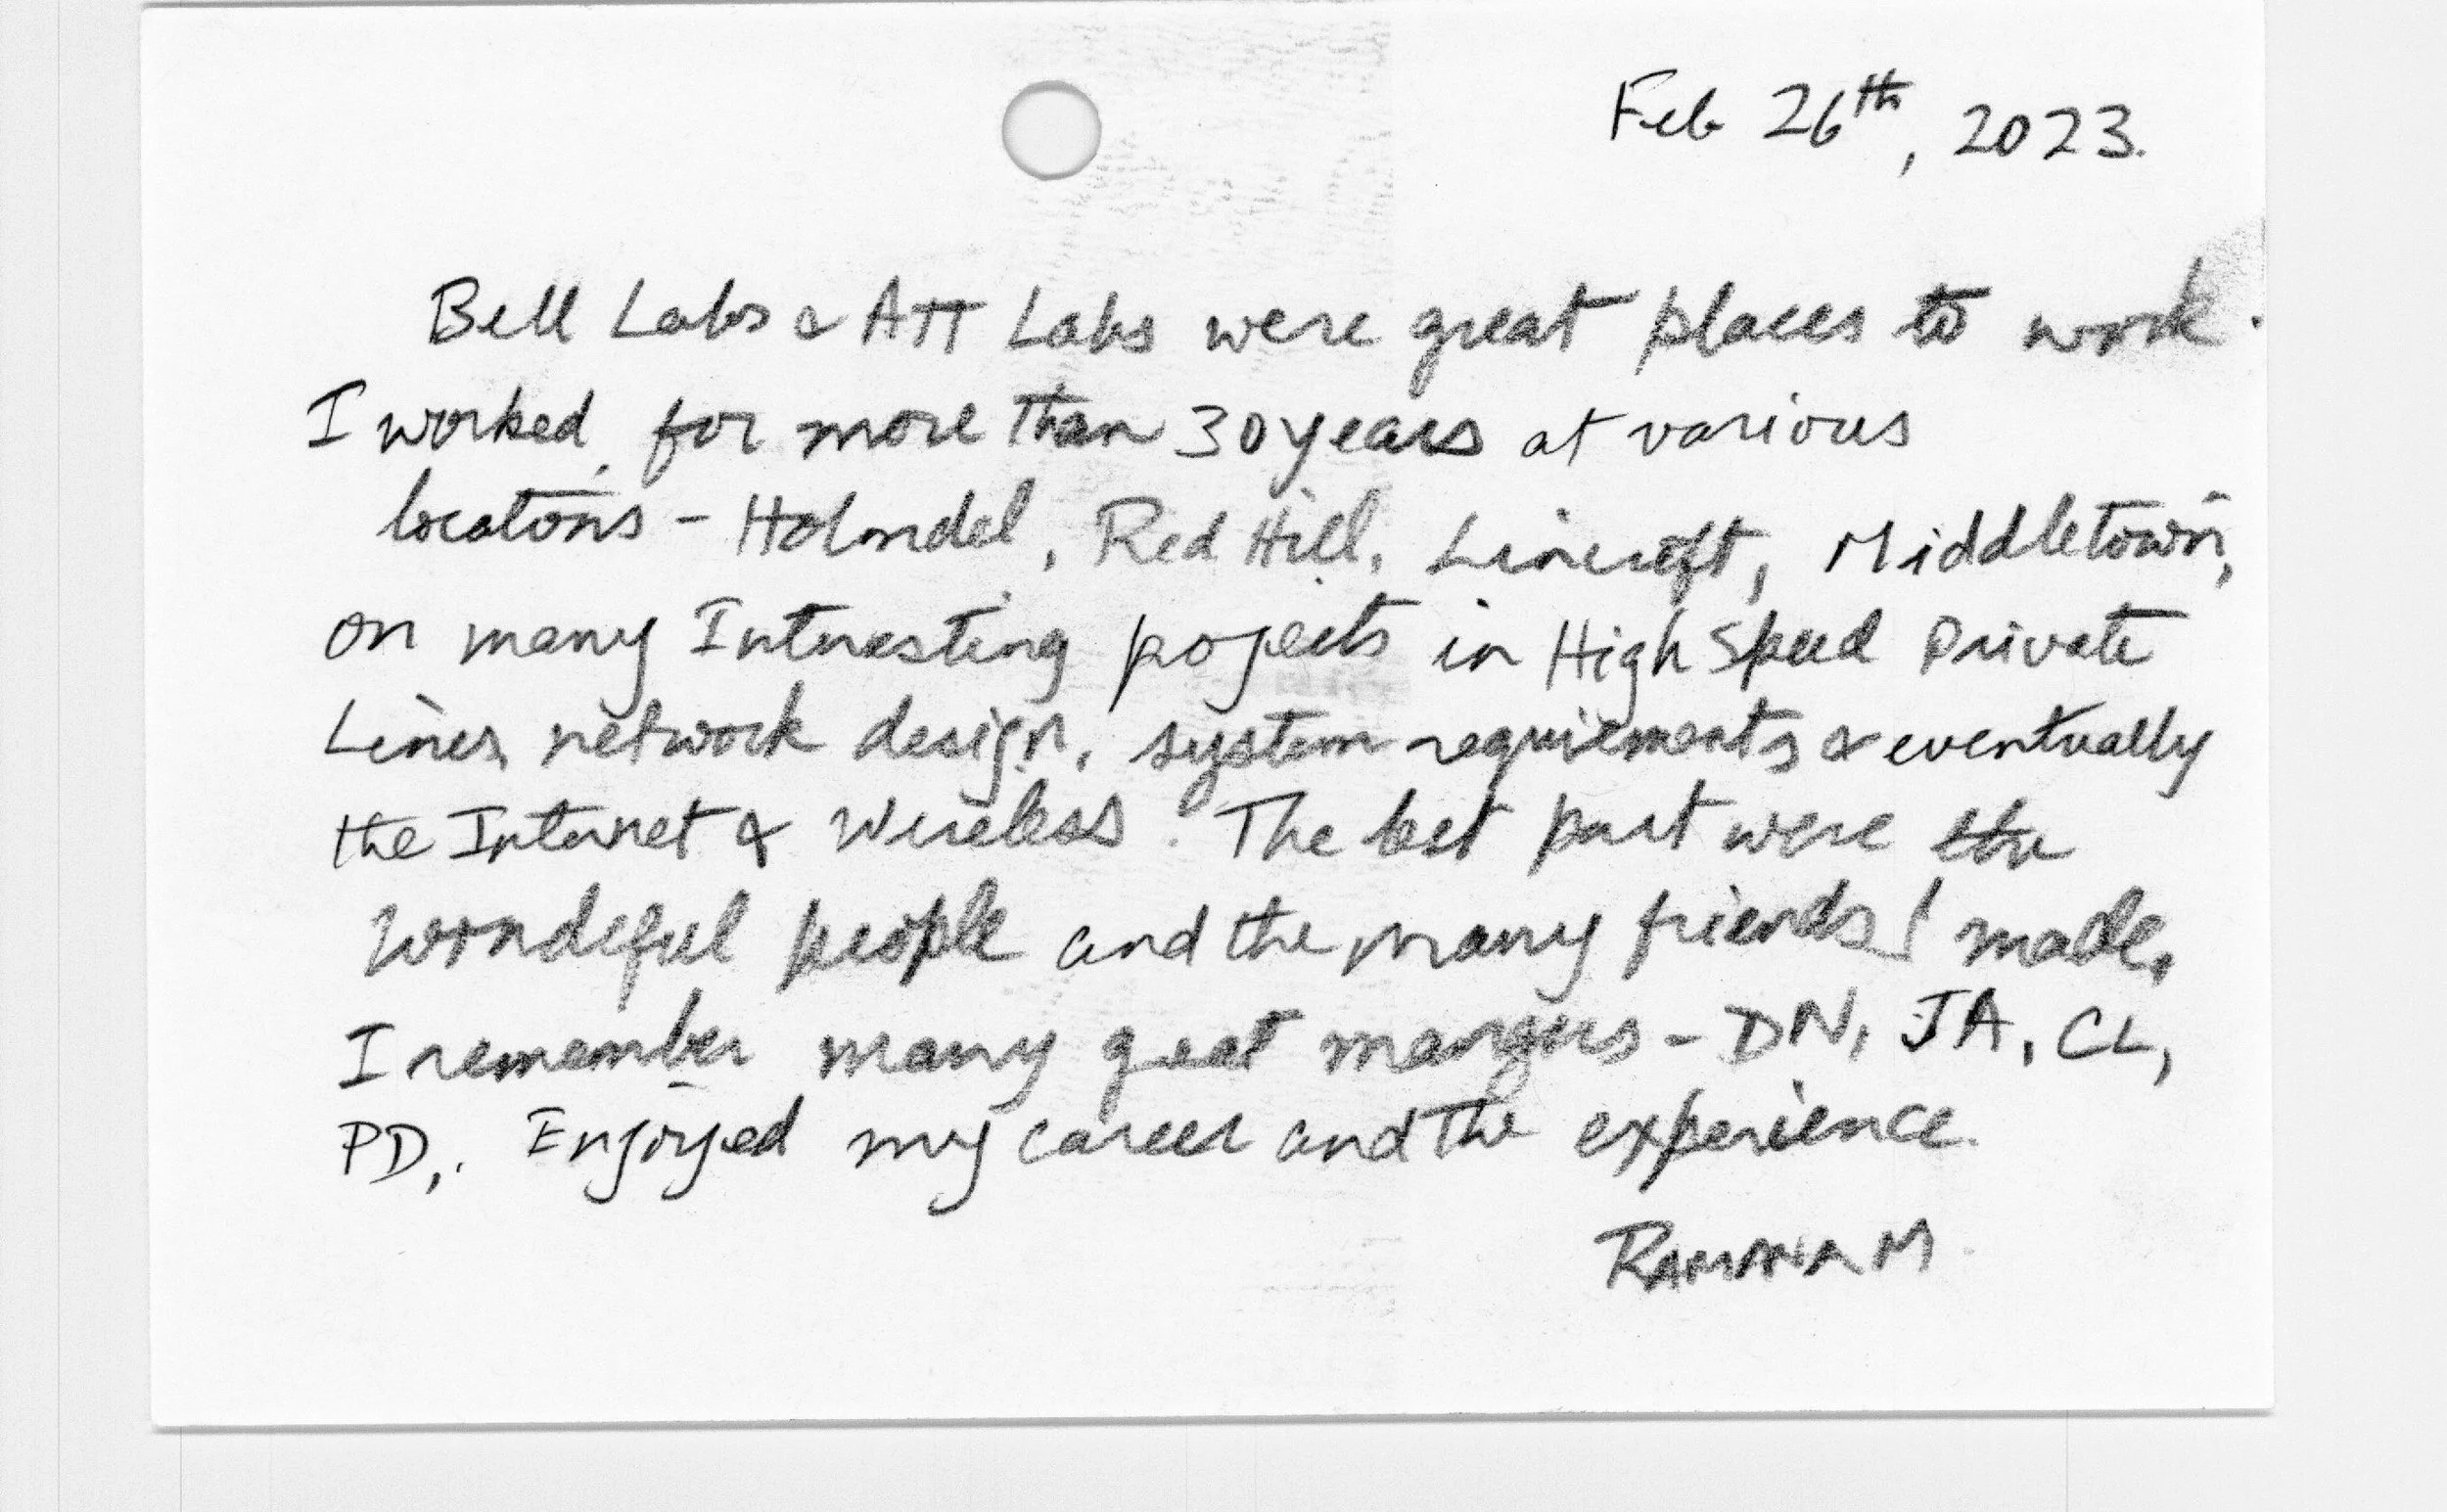 Feb 26th, 2023.
Bell Labs & ATT Labs were great places to work.
I worked for more than 30 years at various
locations - Holmdel, Red Hill, Lincroft, Middletown,
on many Interesting pojects in High Speed Private
Lines network design, system requirements & eventually
the Internet & Wireless. The best part were the
wondeful people and the many friends I made.
I remember many great managers - DN, JA, CL,
PD,. Enjoyed my career and the experience.
RAMANA M.